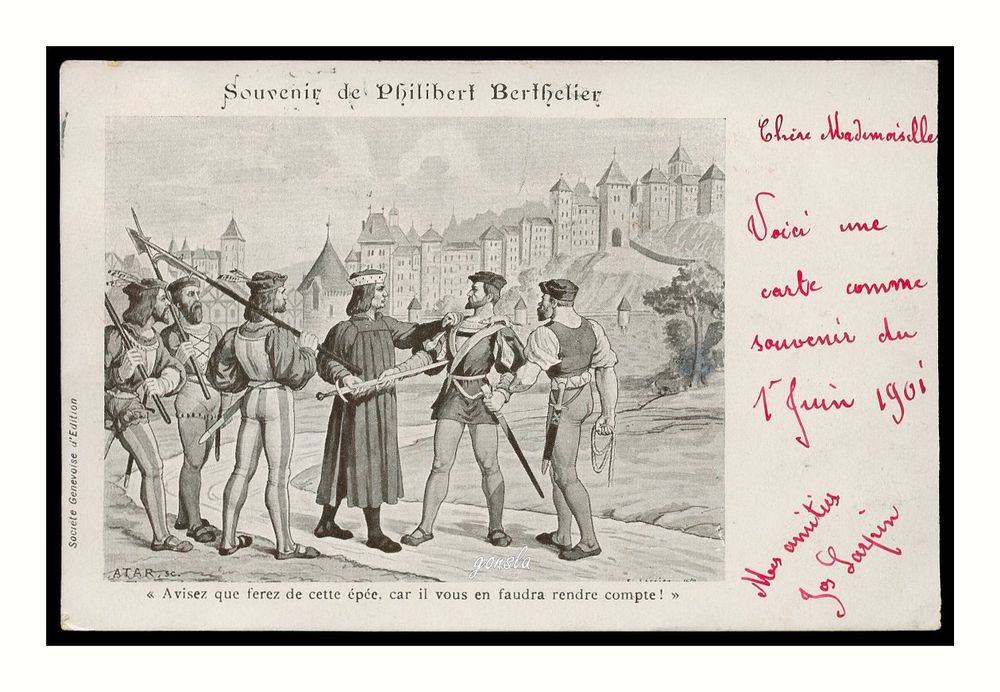 Souvenir de Philibert Berthelier
Chère Mademoiselle
Voici une
carte comme
souvenir du
1r Juin 1901
Mes amitiés
Société Genevoise d'Edition
ATAR, sc.
gonsla
« Avisez que ferez de cette épée, car il vous en faudra rendre compte! »